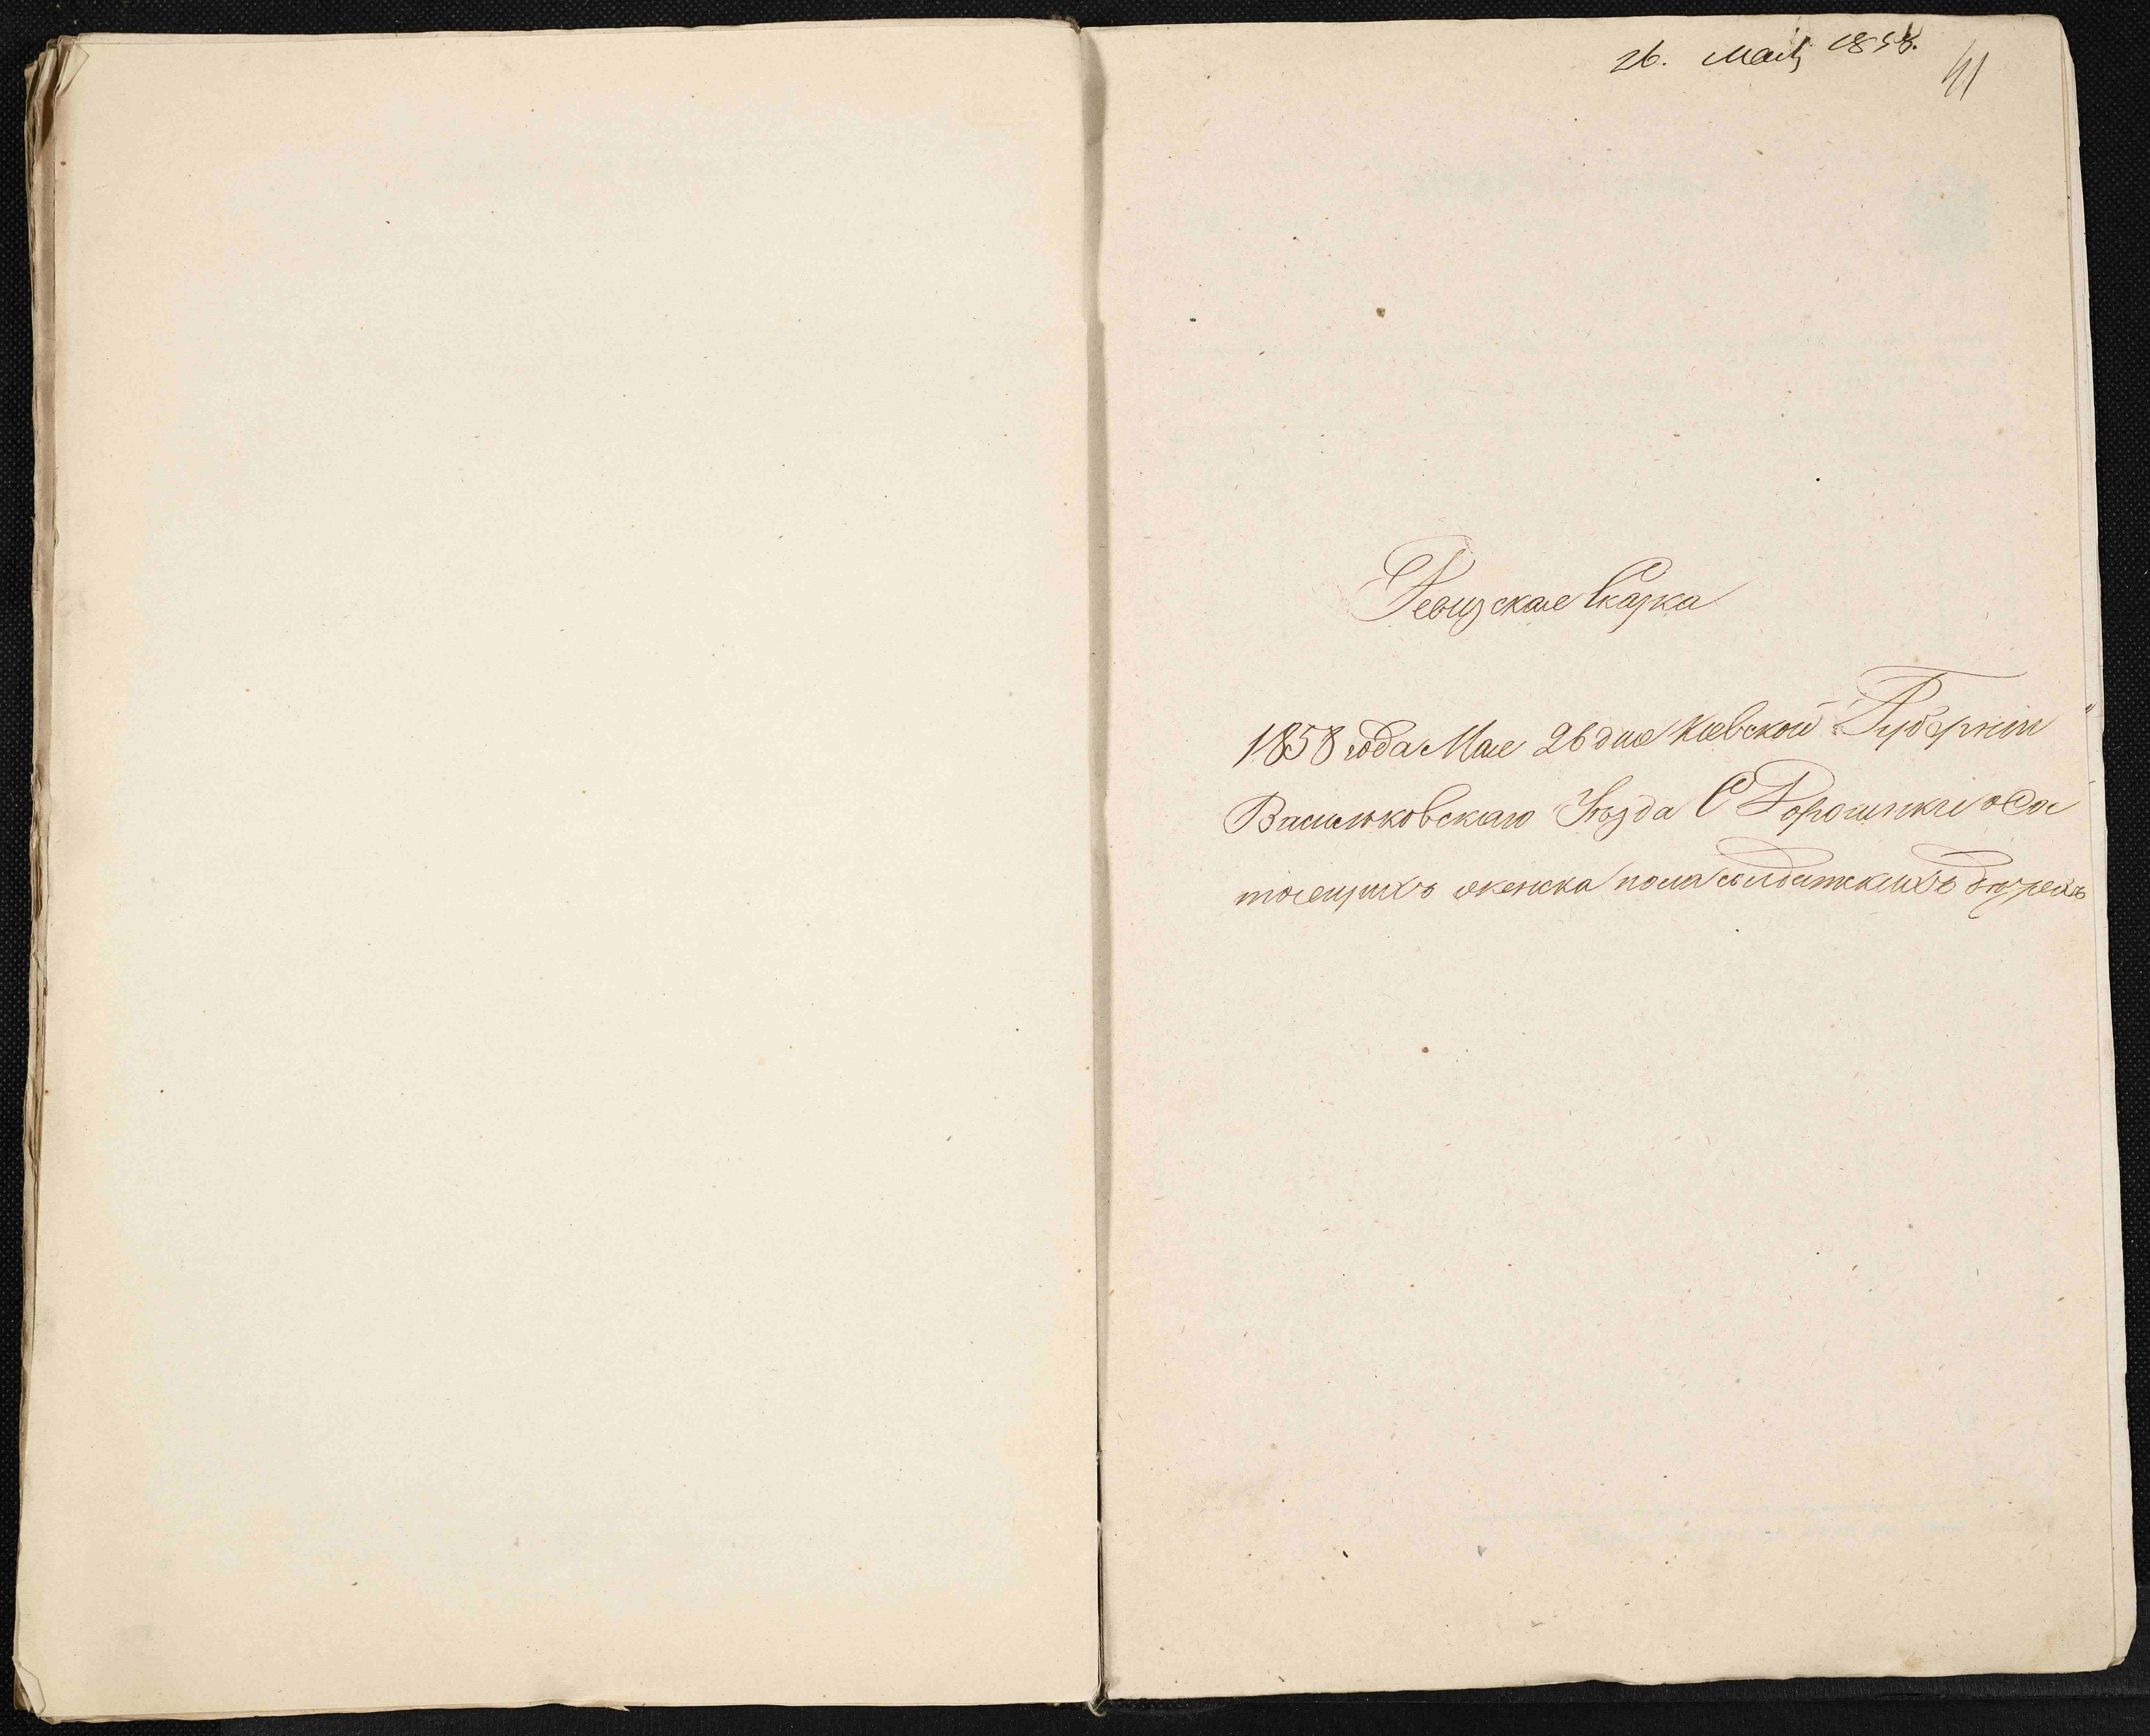 26. Маія 1858.
41
Ревизская Сказка
1858 года Мая 26 дня Кіевской Губерніи
Васильковскаго Уѣзда С Торошенки о Со
тоящихъ женска пола солдатскихъ